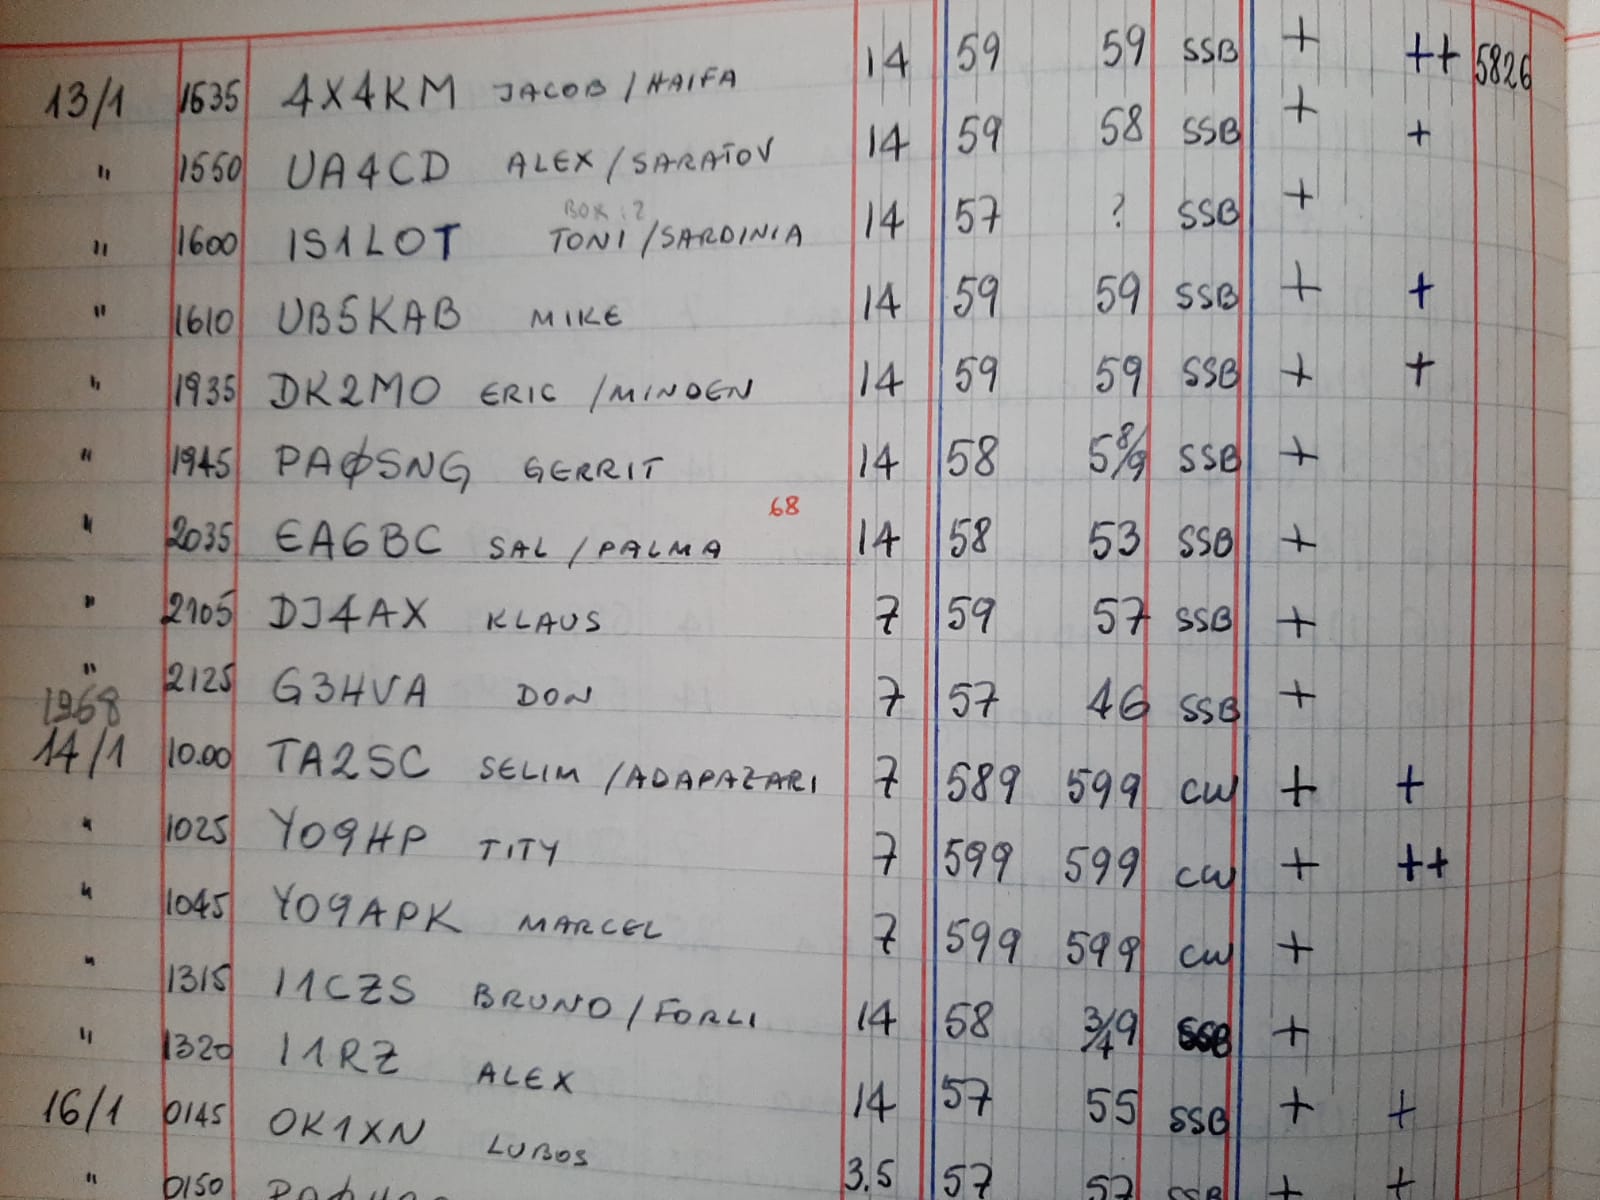 13/1 1635 4X4KM JACOB / HAIFA 14 59 59 SSB + ++ 5826
" 1550 UA4CD ALEX / SARATOV 14 59 58 SSB + +
BOX : 2
" 1600 IS1LOT TONI / SARDINIA 14 57 ? SSB +
" 1610 UB5KAB MIKE 14 59 59 SSB + +
" 1935 DK2MO ERIC / MINDEN 14 59 59 SSB + +
" 1945 PAØSNG GERRIT 14 58 58/9 SSB +
68
" 2035 EA6BC SAL / PALMA 14 58 53 SSB +
" 2105 DJ4AX KLAUS 7 59 57 SSB +
" 2125 G3HVA DON 7 57 46 SSB +
1968
14/1 10.00 TA2SC SELIM / ADAPAZARI 7 589 599 CW + +
" 1025 YO9HP TITY 7 599 599 CW + ++
" 1045 YO9APK MARCEL 7 599 599 CW +
" 1315 I1CZS BRUNO / FORLI 14 58 3/49 SSB +
" 1320 I1RZ ALEX 14 57 55 SSB + +
16/1 0145 OK1XN LUBOS 3.5 57 57 SSB + +
" 0150